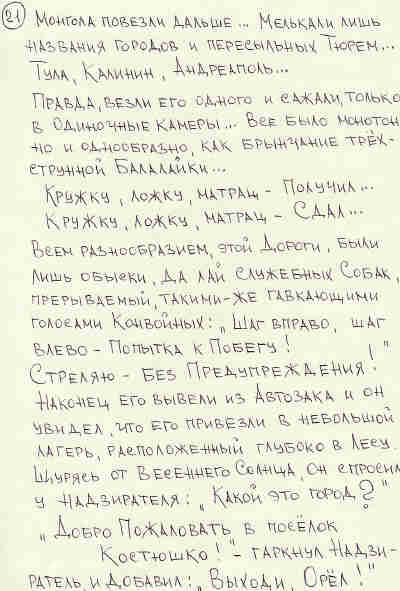 21 Монгола повезли дальше... Мелькали лишь
названия городов и пересыльных Тюрем...
Тула, Калинин, Андреаполь...
Правда, везли его одного и сажали, только
в одиночные камеры... Все было монотон
но и однообразно, как брынчание трёх-
струнной Балалайки...
Кружку, ложку, матрац - Получил...
Кружку, ложку, матрац - Сдал...
Всем разнообразием, этой Дороги, были
лишь обыски, да лай служебных Собак,
прерываемый, такими-же гавкающими
голосами Конвойных: „Шаг вправо, шаг
влево - Попытка к Побегу!
Стреляю - без Предупреждения!"
Наконец его вывели из Автозака и он
увидел, что его привезли в небольшой
лагерь, расположенный глубоко в Лесу.
Щурясь от Весеннего Солнца, он спросил
у надзирателя: „Какой это город?"
„Добро Пожаловать в посёлок
Костюшко!" - гаркнул Надзи-
ратель, и добавил: „Выходи, Орёл!"